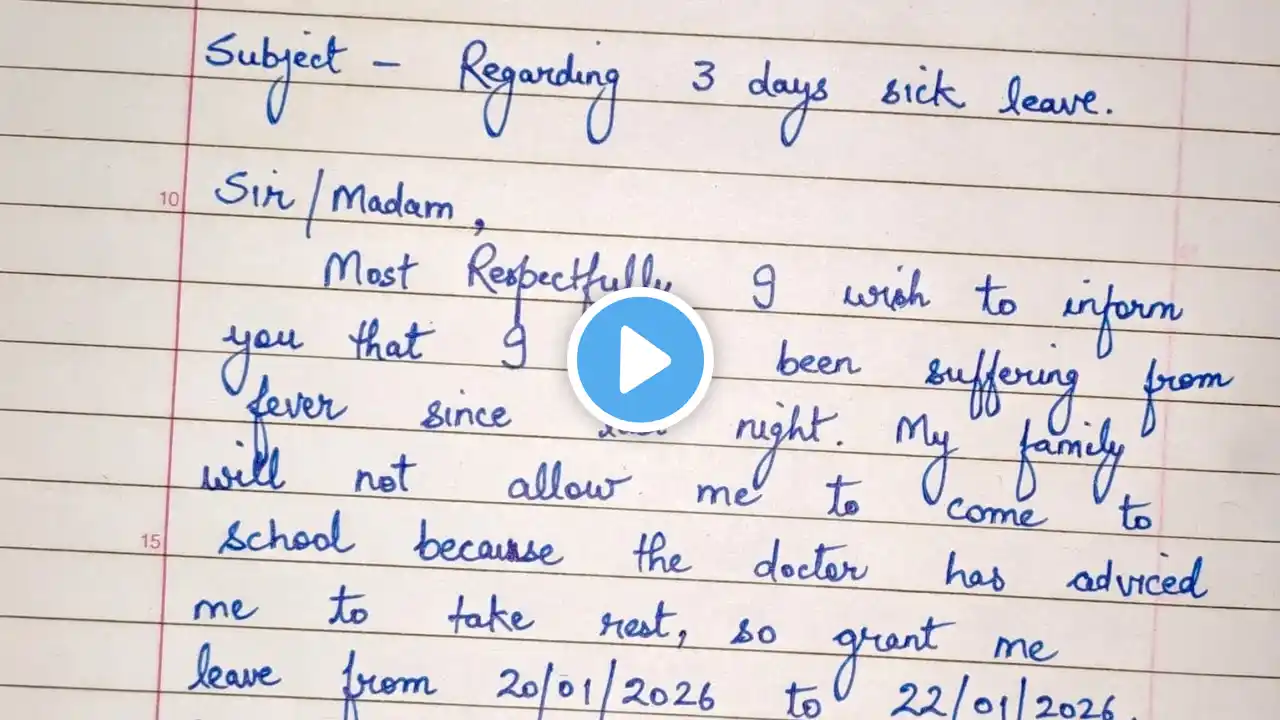 Subject - Regarding 3 days sick leave.
10
Sir/Madam,
Most Respectfully I wish to inform
you that I been suffering from
fever since night. My family
will not allow me to come to
15
school because the doctor has adviced
me to take rest, so grant me
leave from 20/01/2026 to 22/01/2026.